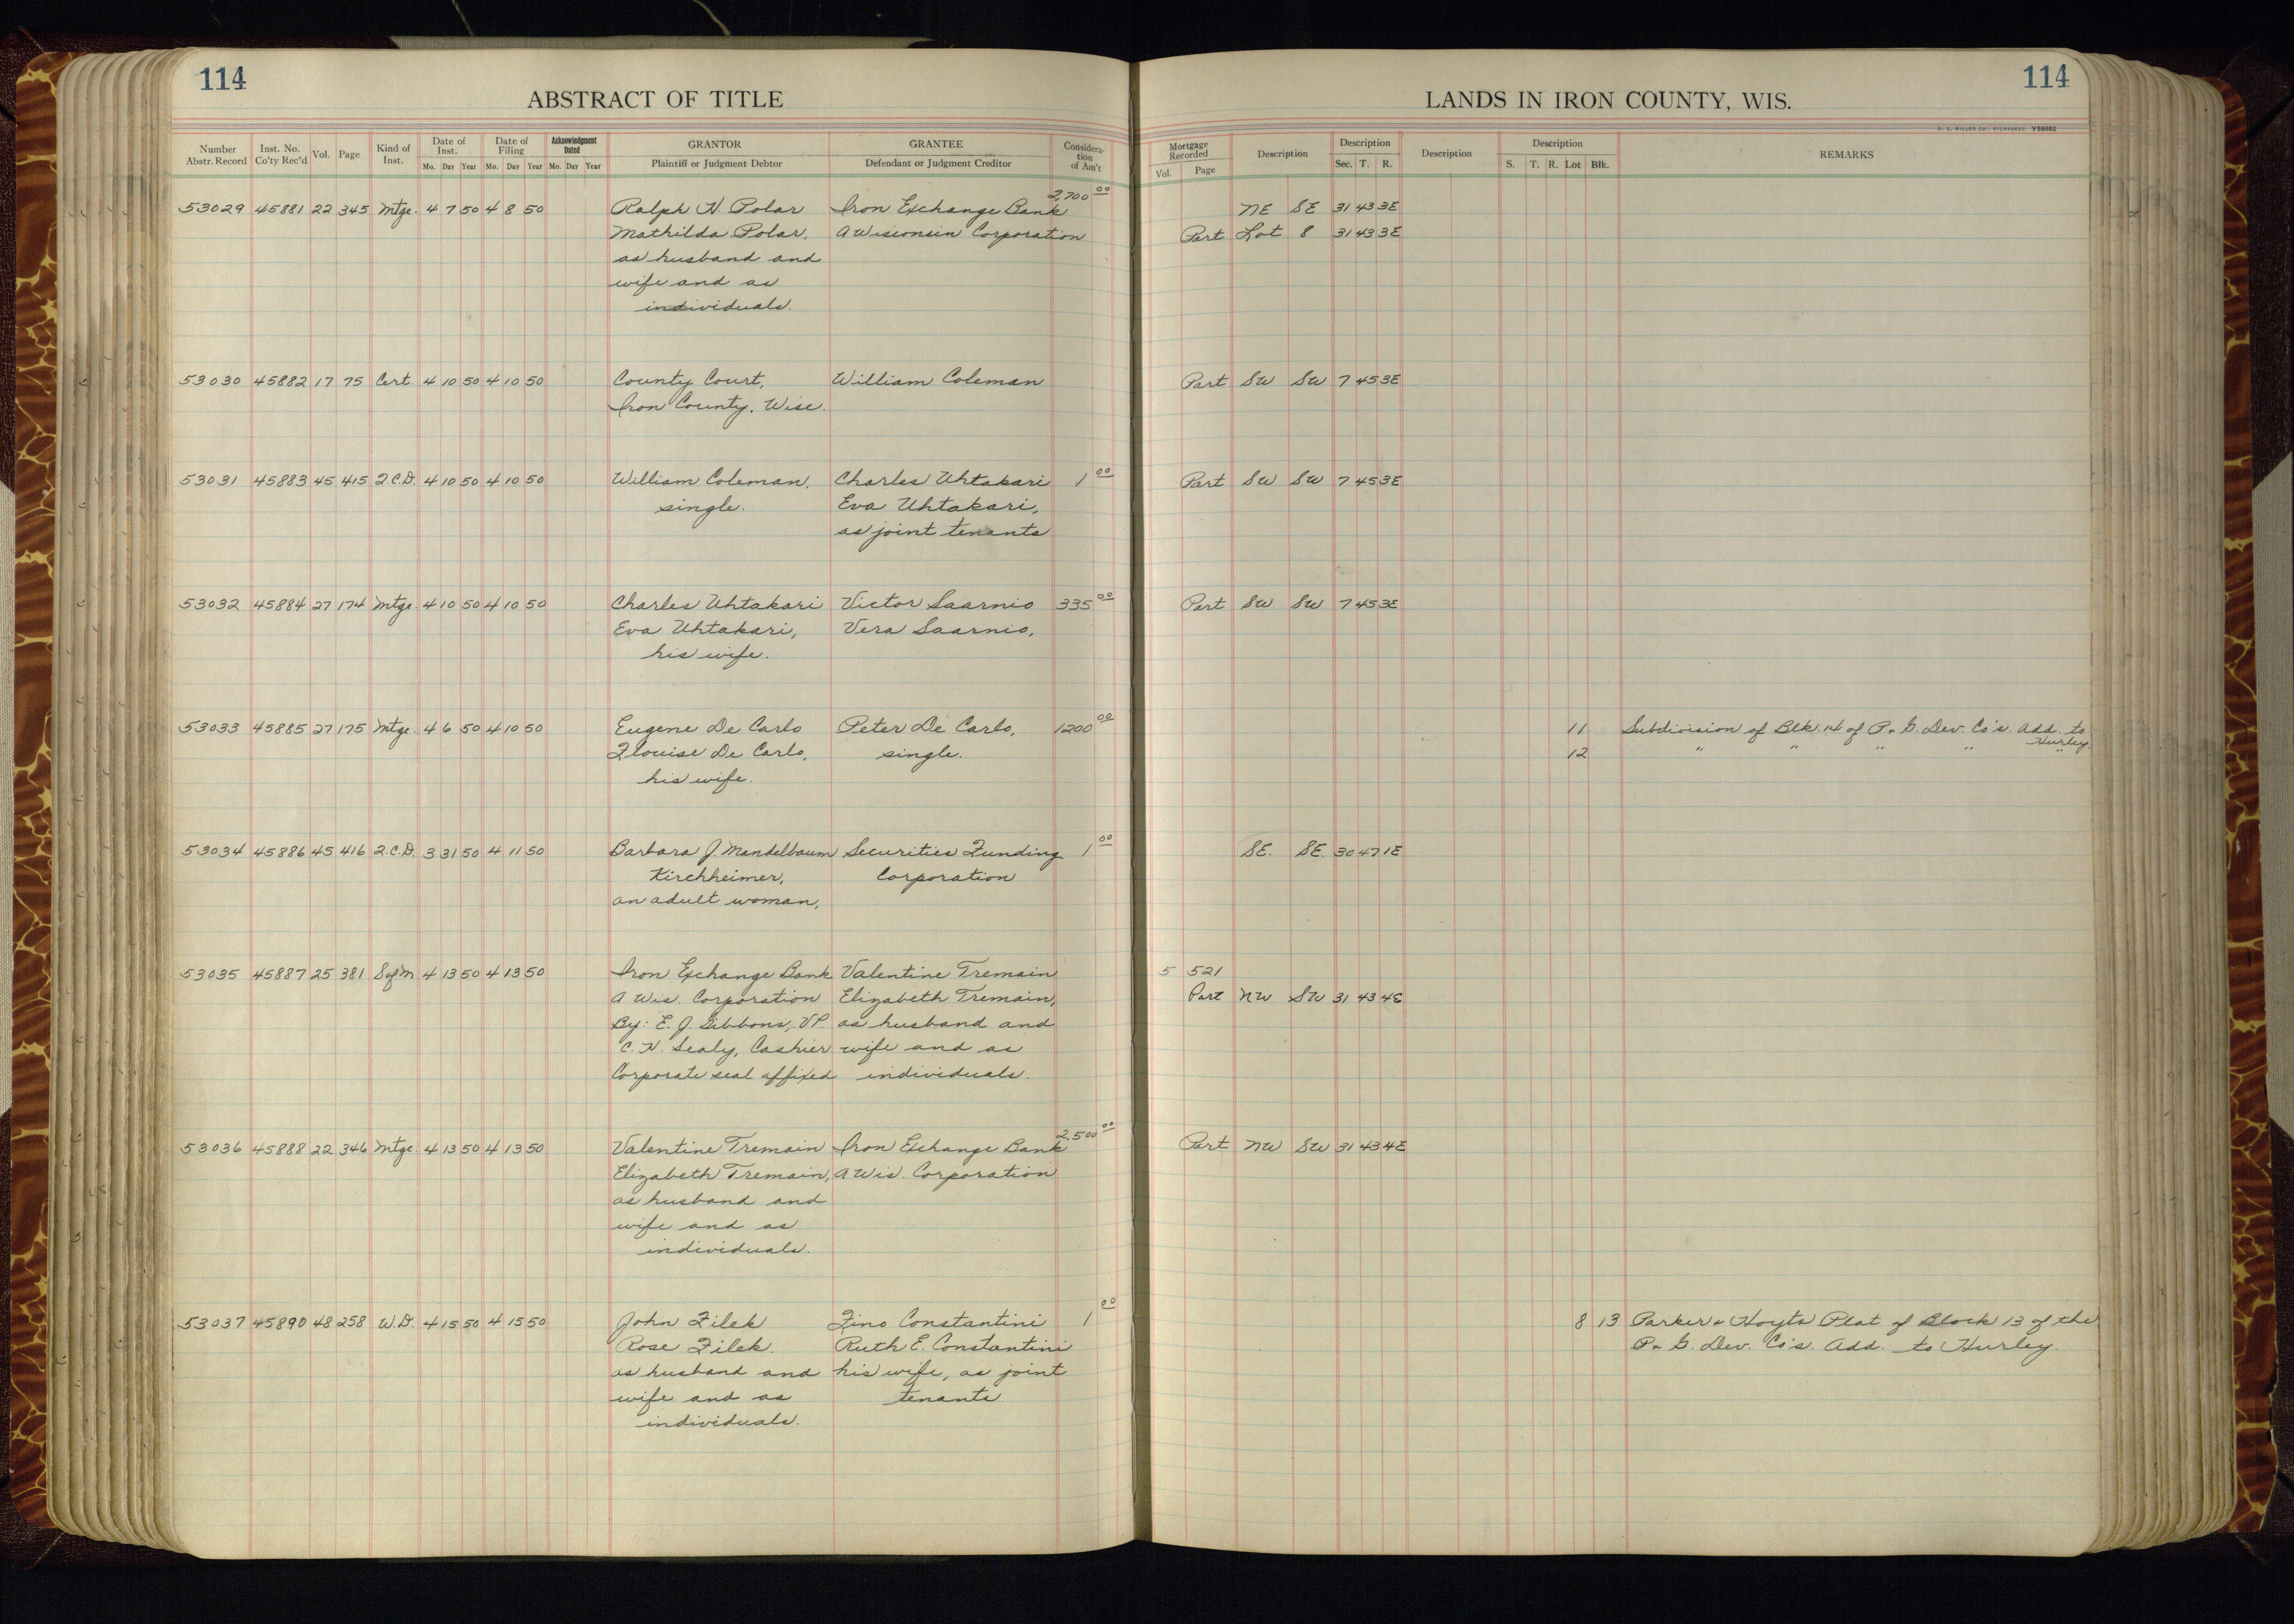 114
ABSTRACT OF TITLE
Number Abstr. Record | Inst. No. Co'ty Rec'd | Vol. | Page | Kind of Inst. | Date of Inst. Mo. Day Year | Date of Filing Mo. Day Year | Acknowledgment Dated Mo. Day Year | GRANTOR Plaintiff or Judgment Debtor | GRANTEE Defendant or Judgment Creditor | Consideration of Am't
53029 45881 22 345 Mtge. 4 7 50 4 8 50 Ralph H. Polar Iron Exchange Bank 2,700 00
Mathilda Polar, A Wisconsin Corporation
as husband and
wife and as
individuals.
53030 45882 17 75 Cert. 4 10 50 4 10 50 County Court, William Coleman
Iron County, Wisc.
53031 45883 45 415 Q.C.D. 4 10 50 4 10 50 William Coleman, Charles Uhtakari 1 00
single. Eva Uhtakari,
as joint tenants
53032 45884 27 174 Mtge. 4 10 50 4 10 50 Charles Uhtakari Victor Saarnio 335 00
Eva Uhtakari, Vera Saarnio,
his wife.
53033 45885 27 175 Mtge. 4 6 50 4 10 50 Eugene De Carlo Peter De Carlo, 1200 00
Flouise De Carlo, single.
his wife.
53034 45886 45 416 Q.C.D. 3 31 50 4 11 50 Barbara J. Mandelbaum Securities Funding 1 00
Kirchheimer, Corporation
an adult woman,
53035 45887 25 381 S of M 4 13 50 4 13 50 Iron Exchange Bank Valentine Tremain
A Wis. Corporation Elizabeth Tremain,
By: E. J. Gibbons, VP. as husband and
C. N. Sealy, Cashier wife and as
Corporate seal affixed individuals.
53036 45888 22 346 Mtge. 4 13 50 4 13 50 Valentine Tremain Iron Exchange Bank 2,500 00
Elizabeth Tremain, A Wis. Corporation
as husband and
wife and as
individuals.
53037 45890 48 258 W.D. 4 15 50 4 15 50 John Zilek Zino Constantini 1 00
Rose Zilek. Ruth E. Constantini
as husband and his wife, as joint
wife and as tenants
individuals.
114
LANDS IN IRON COUNTY, WIS.
H. C. MILLER CO., MILWAUKEE Y38882
Mortgage Recorded Vol. Page | Description | Description Sec. T. R. | Description | Description S. T. R. Lot Blk. | REMARKS
NE SE 31 43 3E
Part Lot 8 31 43 3E
Part SW SW 7 45 3E
Part SW SW 7 45 3E
Part SW SW 7 45 3E
11 Subdivision of Blk. 14 of P. & G. Dev. Co's. Add. to Hurley
12 " " " " "
SE. SE. 30 47 1E
5 521
Part NW SW 31 43 4E
Part NW SW 31 43 4E
8 13 Parker & Hoyts Plat of Block 13 of the
P. & G. Dev. Co's. Add. to Hurley.